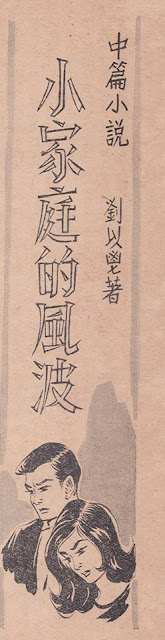 中篇小説
劉以鬯著
小家庭的風波